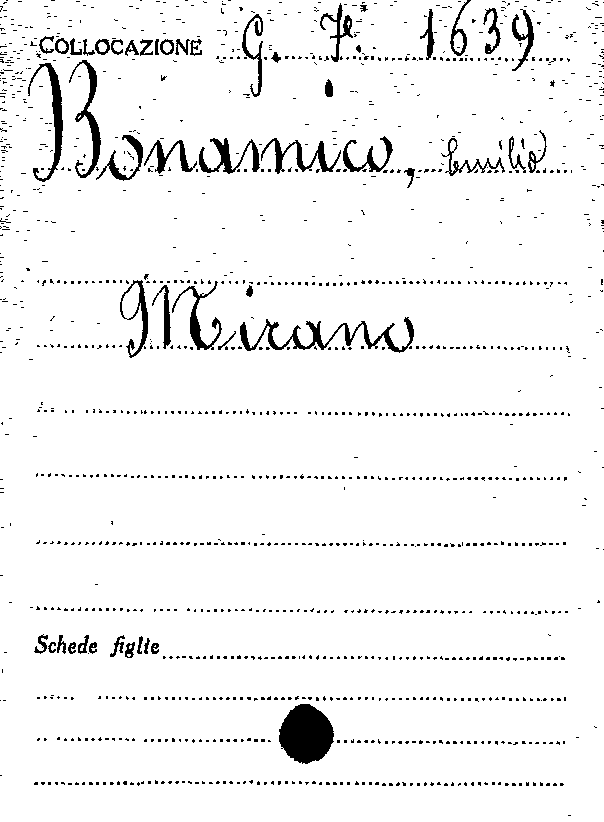 COLLOCAZIONE G. 7e. 1639
Bonamico, Emilio
Mirano
Schede figlie